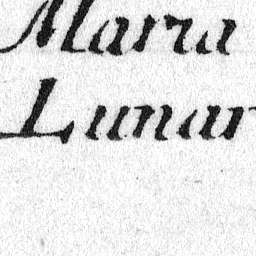 Maria
Lunar